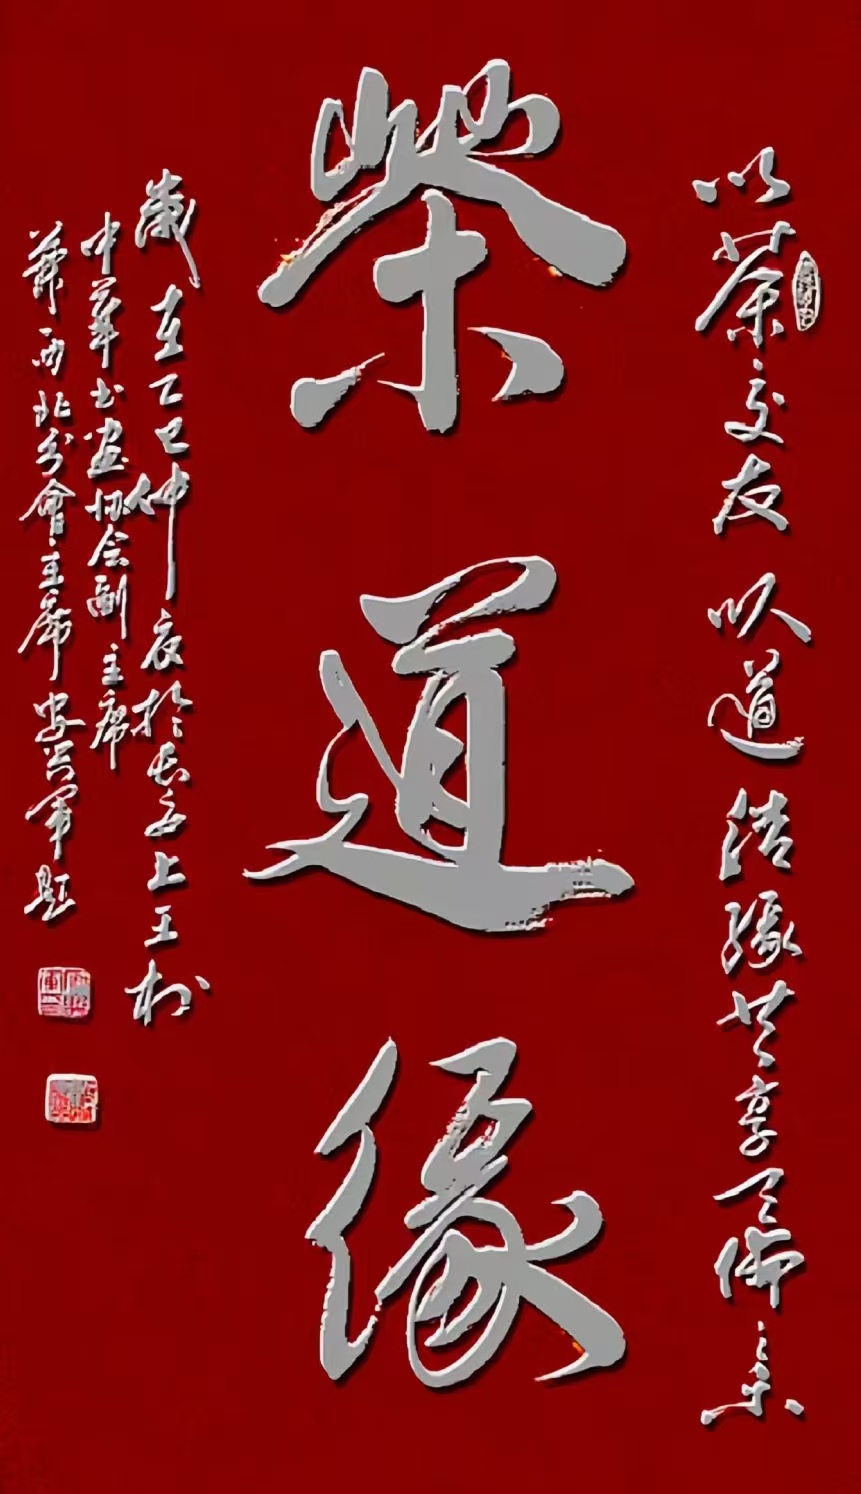 以茶交友 以道结缘共享天倫之乐
茶道缘
歲在乙巳仲夏於长安上王村
中華书畫协会副主席
兼西北分會主席安军题